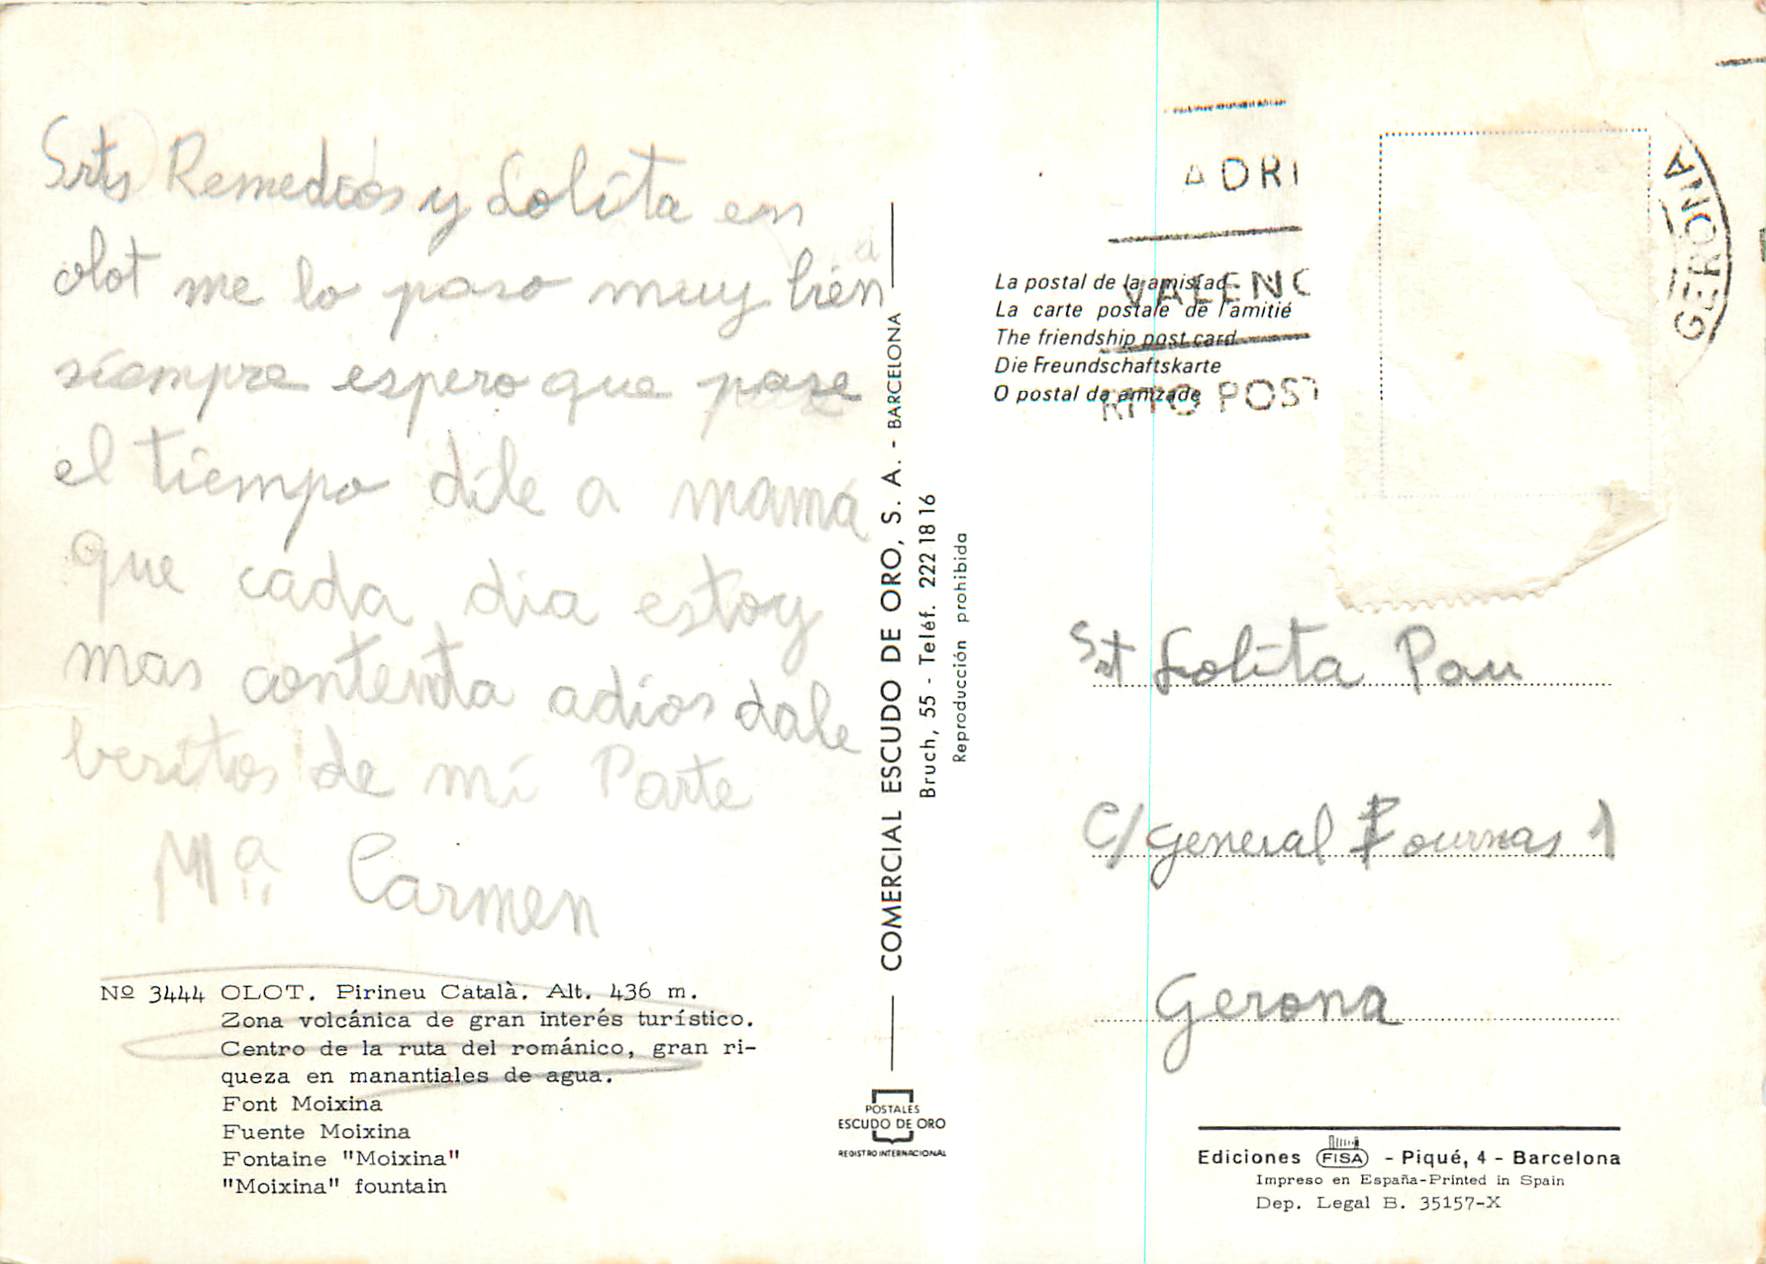 Srts Remedios y Lolita en
olot me lo paso muy bién
siempre espero que pase
el tiempo dile a mamá
que cada dia estoy
mas contenta adios dale
besitos de mi Parte
Mª Carmen
Nº 3444 OLOT. Pirineu Català. Alt. 436 m.
Zona volcánica de gran interés turístico.
Centro de la ruta del románico, gran ri-
queza en manantiales de agua.
Font Moixina
Fuente Moixina
Fontaine "Moixina"
"Moixina" fountain
COMERCIAL ESCUDO DE ORO, S. A. - BARCELONA
Bruch, 55 - Teléf. 222 18 16
Reproducción prohibida
POSTALES
ESCUDO DE ORO
REGISTRO INTERNACIONAL
ADRI
VALENC
RITO POST
GERONA
La postal de la amistad
La carte postale de l'amitié
The friendship post card
Die Freundschaftskarte
O postal da amizade
Srt Lolita Pau
C/ General Fournas 1
Gerona
Ediciones FISA - Piqué, 4 - Barcelona
Impreso en España-Printed in Spain
Dep. Legal B. 35157-X